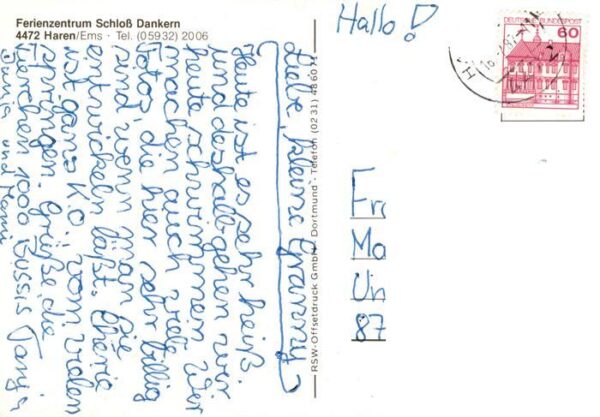 Ferienzentrum Schloß Dankern
4472 Haren/Ems · Tel. (05932) 2006
Liebe, kleine Grammy!
Heute ist es sehr heiß
und deshalb gehen wir
heute schwimmen. Wir
machen auch viele
Fotos, die hier sehr billig
sind, wenn man sie
entwickeln läßt. Cherie
ist ganz K.O. vom vielen
springen. Grüße die
Tierchen 1000 Bussis Tanja
und Mami
RSW-Offsetdruck GmbH · Dortmund · Telefon (0231) 486011
Hallo!
DEUTSCHE BUNDESPOST
60
Fr
Ma
Un
87